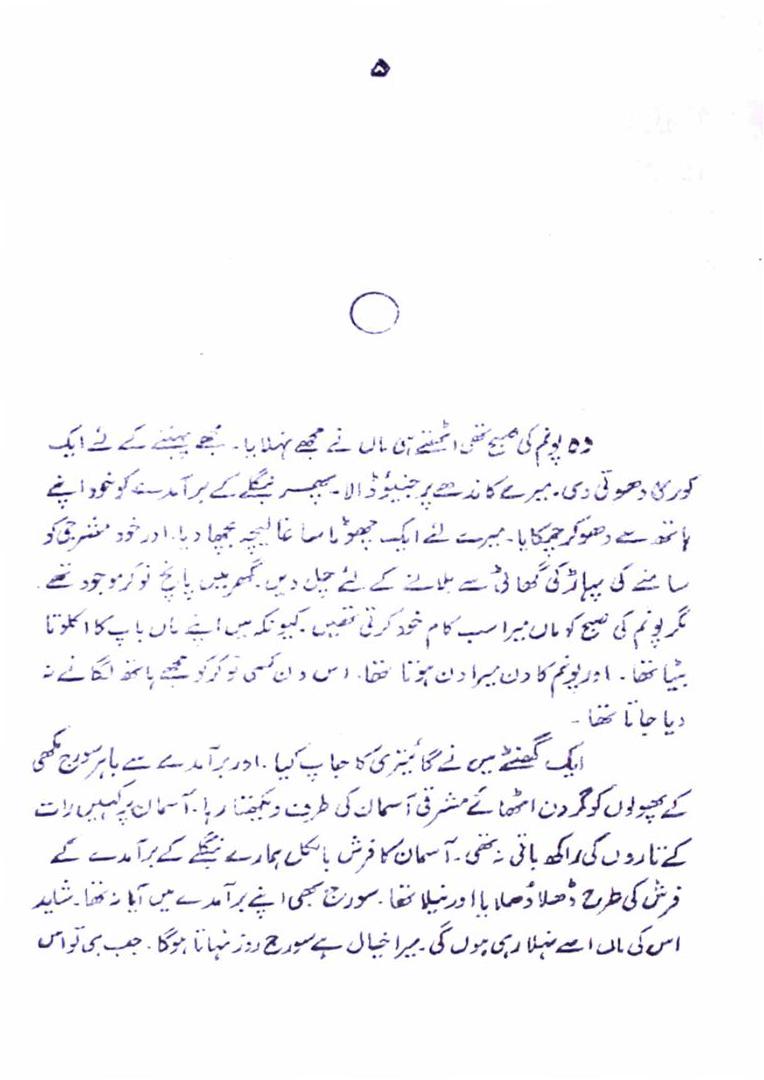 ۵
وہ پونم کی صبح تھی اٹھتے ہی ماں نے مجھے نہلایا۔ مجھے پہننے کے لئے ایک
کوری دھوتی دی۔ میرے کاندھے پر جنیئو ڈالا۔ پھر بنگلے کے برآمدے کو خود اپنے
ہاتھ سے دھو کر چمکایا۔ میرے لئے ایک چھوٹا سا غالیچہ بچھا دیا۔ اور خود مشرجی کو
سامنے کی پہاڑ کی گھاٹی سے بلانے کے لئے چل دیں۔ گھر میں پانچ نوکر موجود تھے۔
مگر پونم کی صبح کو ماں میرا سب کام خود کرتی تھیں۔ کیونکہ میں اپنے ماں باپ کا اکلوتا
بیٹا تھا۔ اور پونم کا دن میرا دن ہوتا تھا۔ اس دن کسی نوکر کو مجھے ہاتھ لگانے نہ
دیا جاتا تھا۔
ایک گھنٹے میں نے گائیتری کا جاپ کیا۔ اور برآمدے سے باہر سورج مکھی
کے پھولوں کو گردن اٹھائے مشرقی آسمان کی طرف دیکھتا رہا۔ آسمان پر کہیں رات
کے تاروں کی راکھ باقی نہ تھی۔ آسمان کا فرش بالکل ہمارے بنگلے کے برآمدے کے
فرش کی طرح ڈھلا ڈھلایا اور نیلا تھا۔ سورج ابھی اپنے برآمدے میں آیا نہ تھا۔ شاید
اس کی ماں اسے نہلا رہی ہوں گی۔ میرا خیال ہے سورج روز نہاتا ہوگا۔ جب ہی تو اس